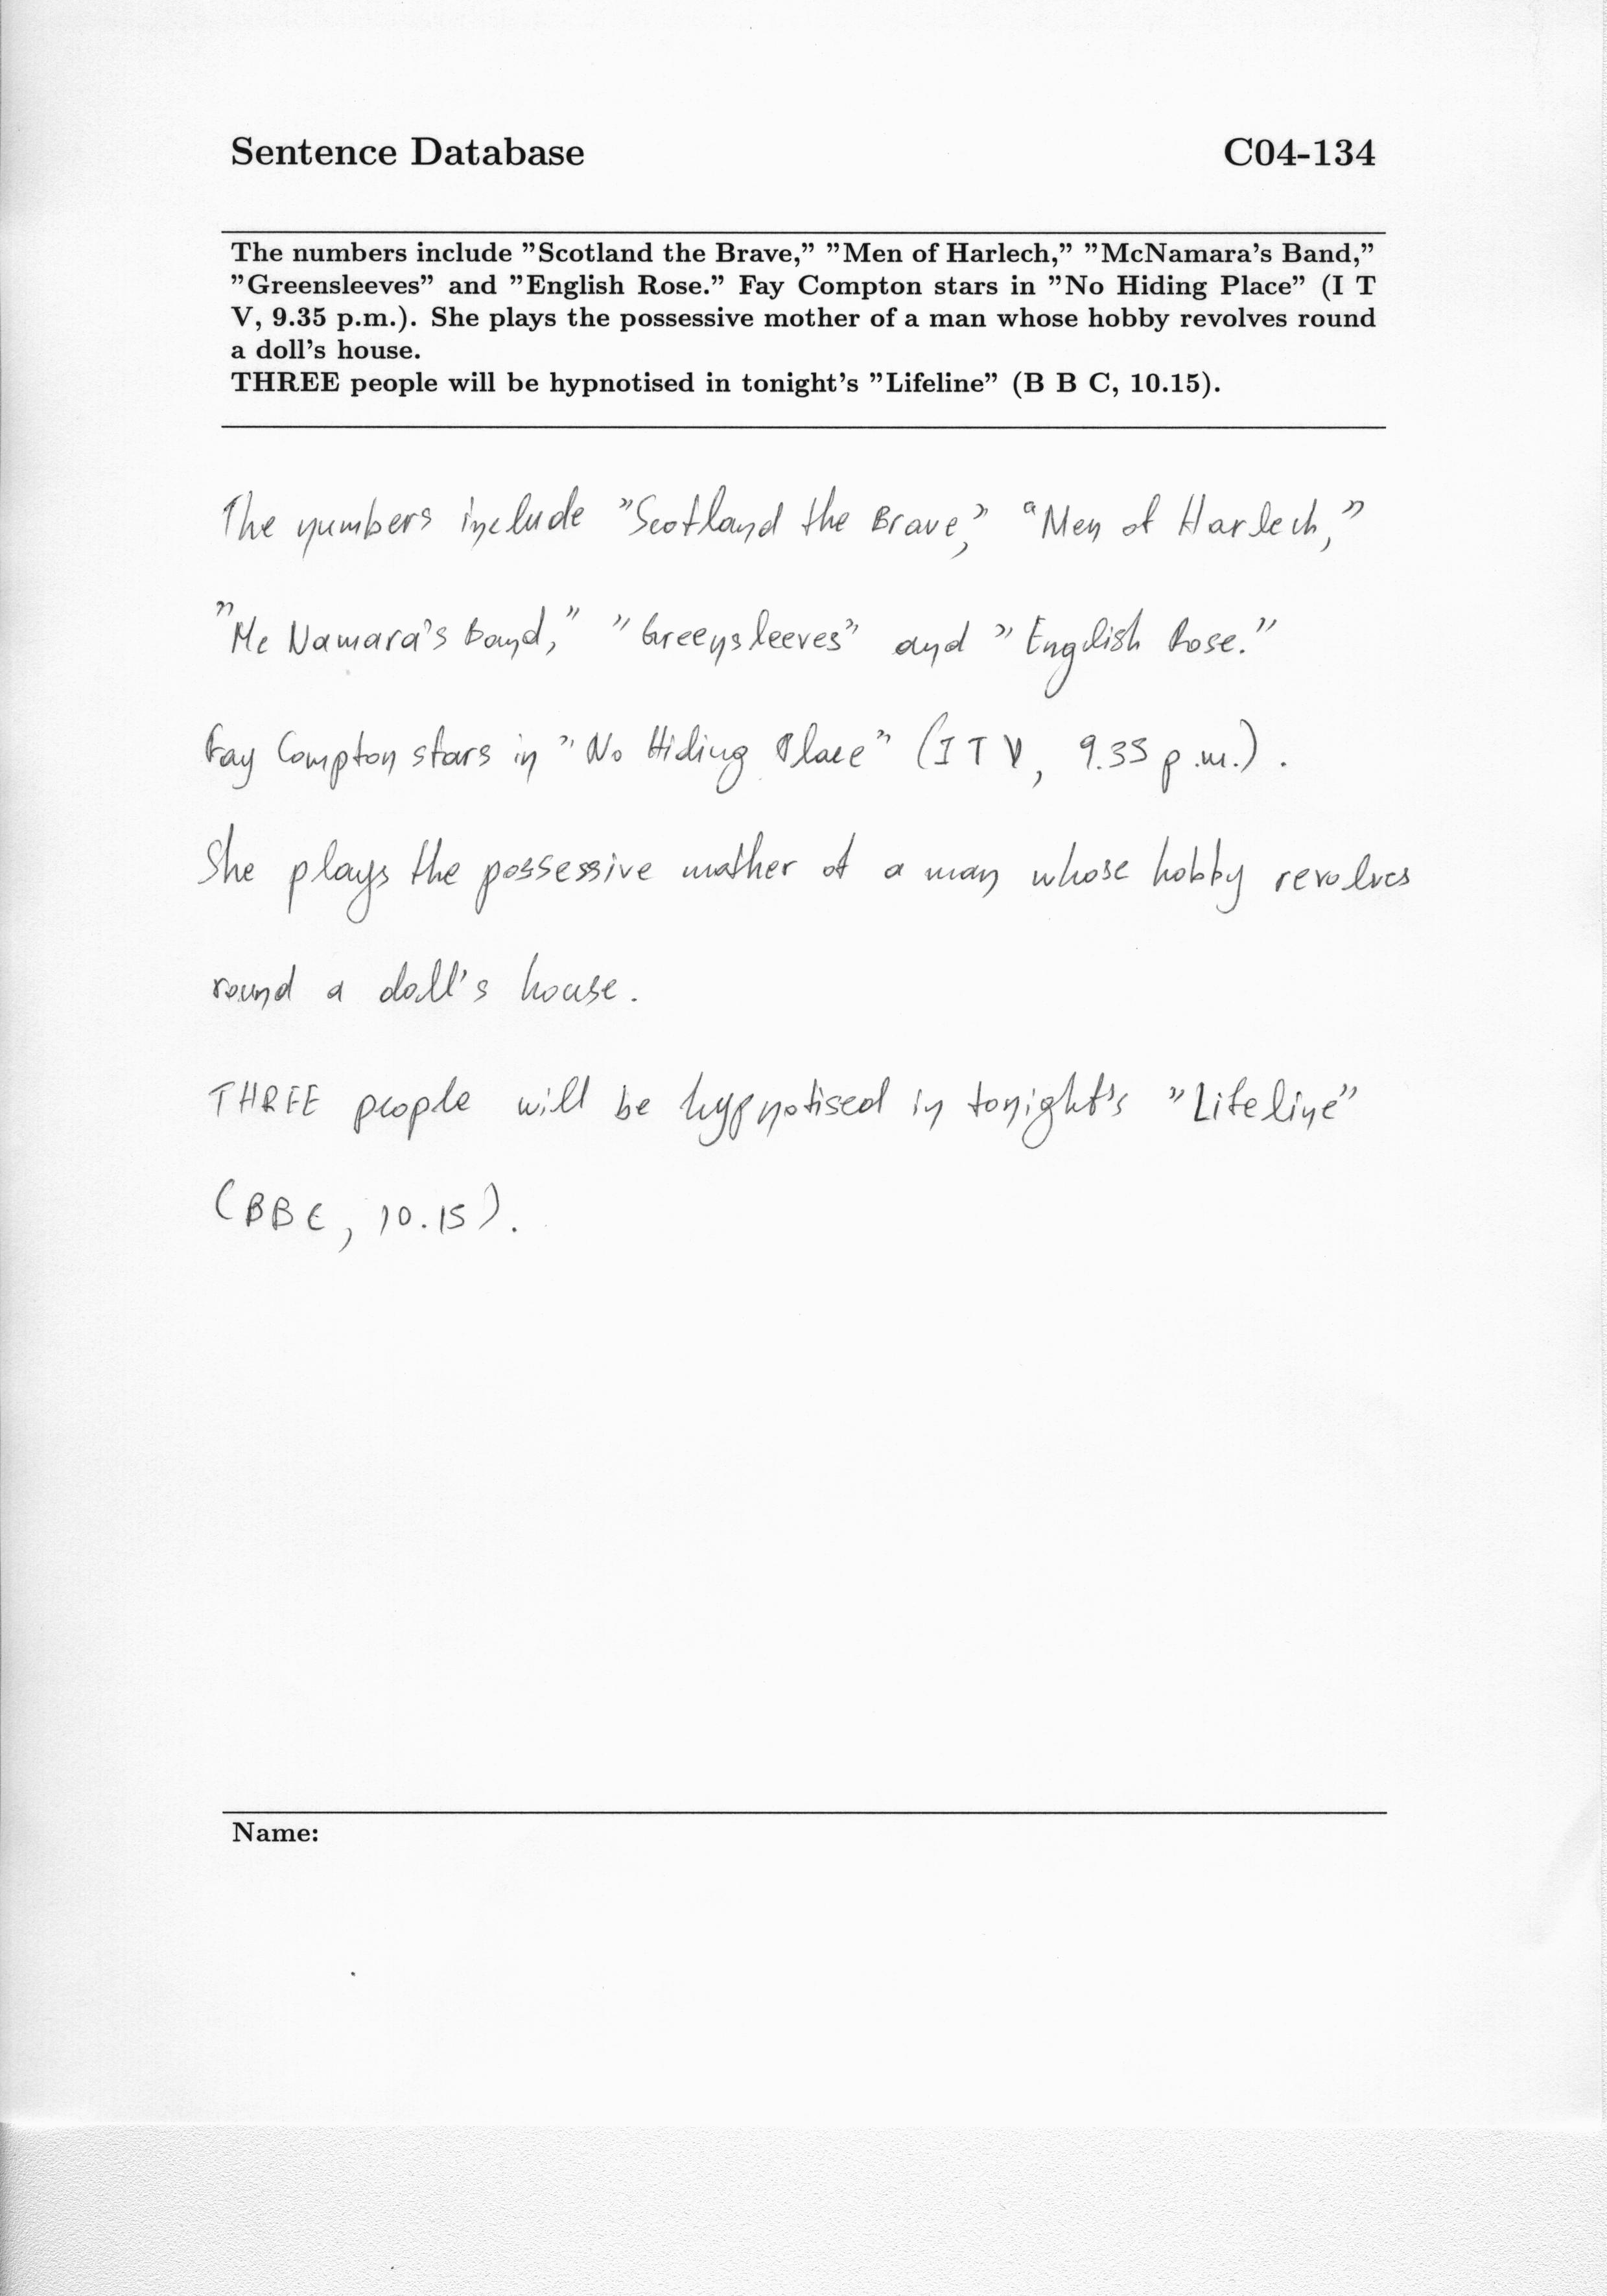 Sentence Database C04-134
The numbers include "Scotland the Brave," "Men of Harlech," "McNamara's Band,"
"Greensleeves" and "English Rose." Fay Compton stars in "No Hiding Place" (I T
V, 9.35 p.m.). She plays the possessive mother of a man whose hobby revolves round
a doll's house.
THREE people will be hypnotised in tonight's "Lifeline" (B B C, 10.15).
The numbers include "Scotland the Brave," "Men of Harlech,"
"Mc Namara's Band," "Greensleeves" and "English Rose."
Fay Compton stars in "No Hiding Place" (I T V, 9.35 p.m.).
She plays the possessive mother of a man whose hobby revolves
round a doll's house.
THREE people will be hypnotised in tonight's "Lifeline"
(BBC, 10.15).
Name: